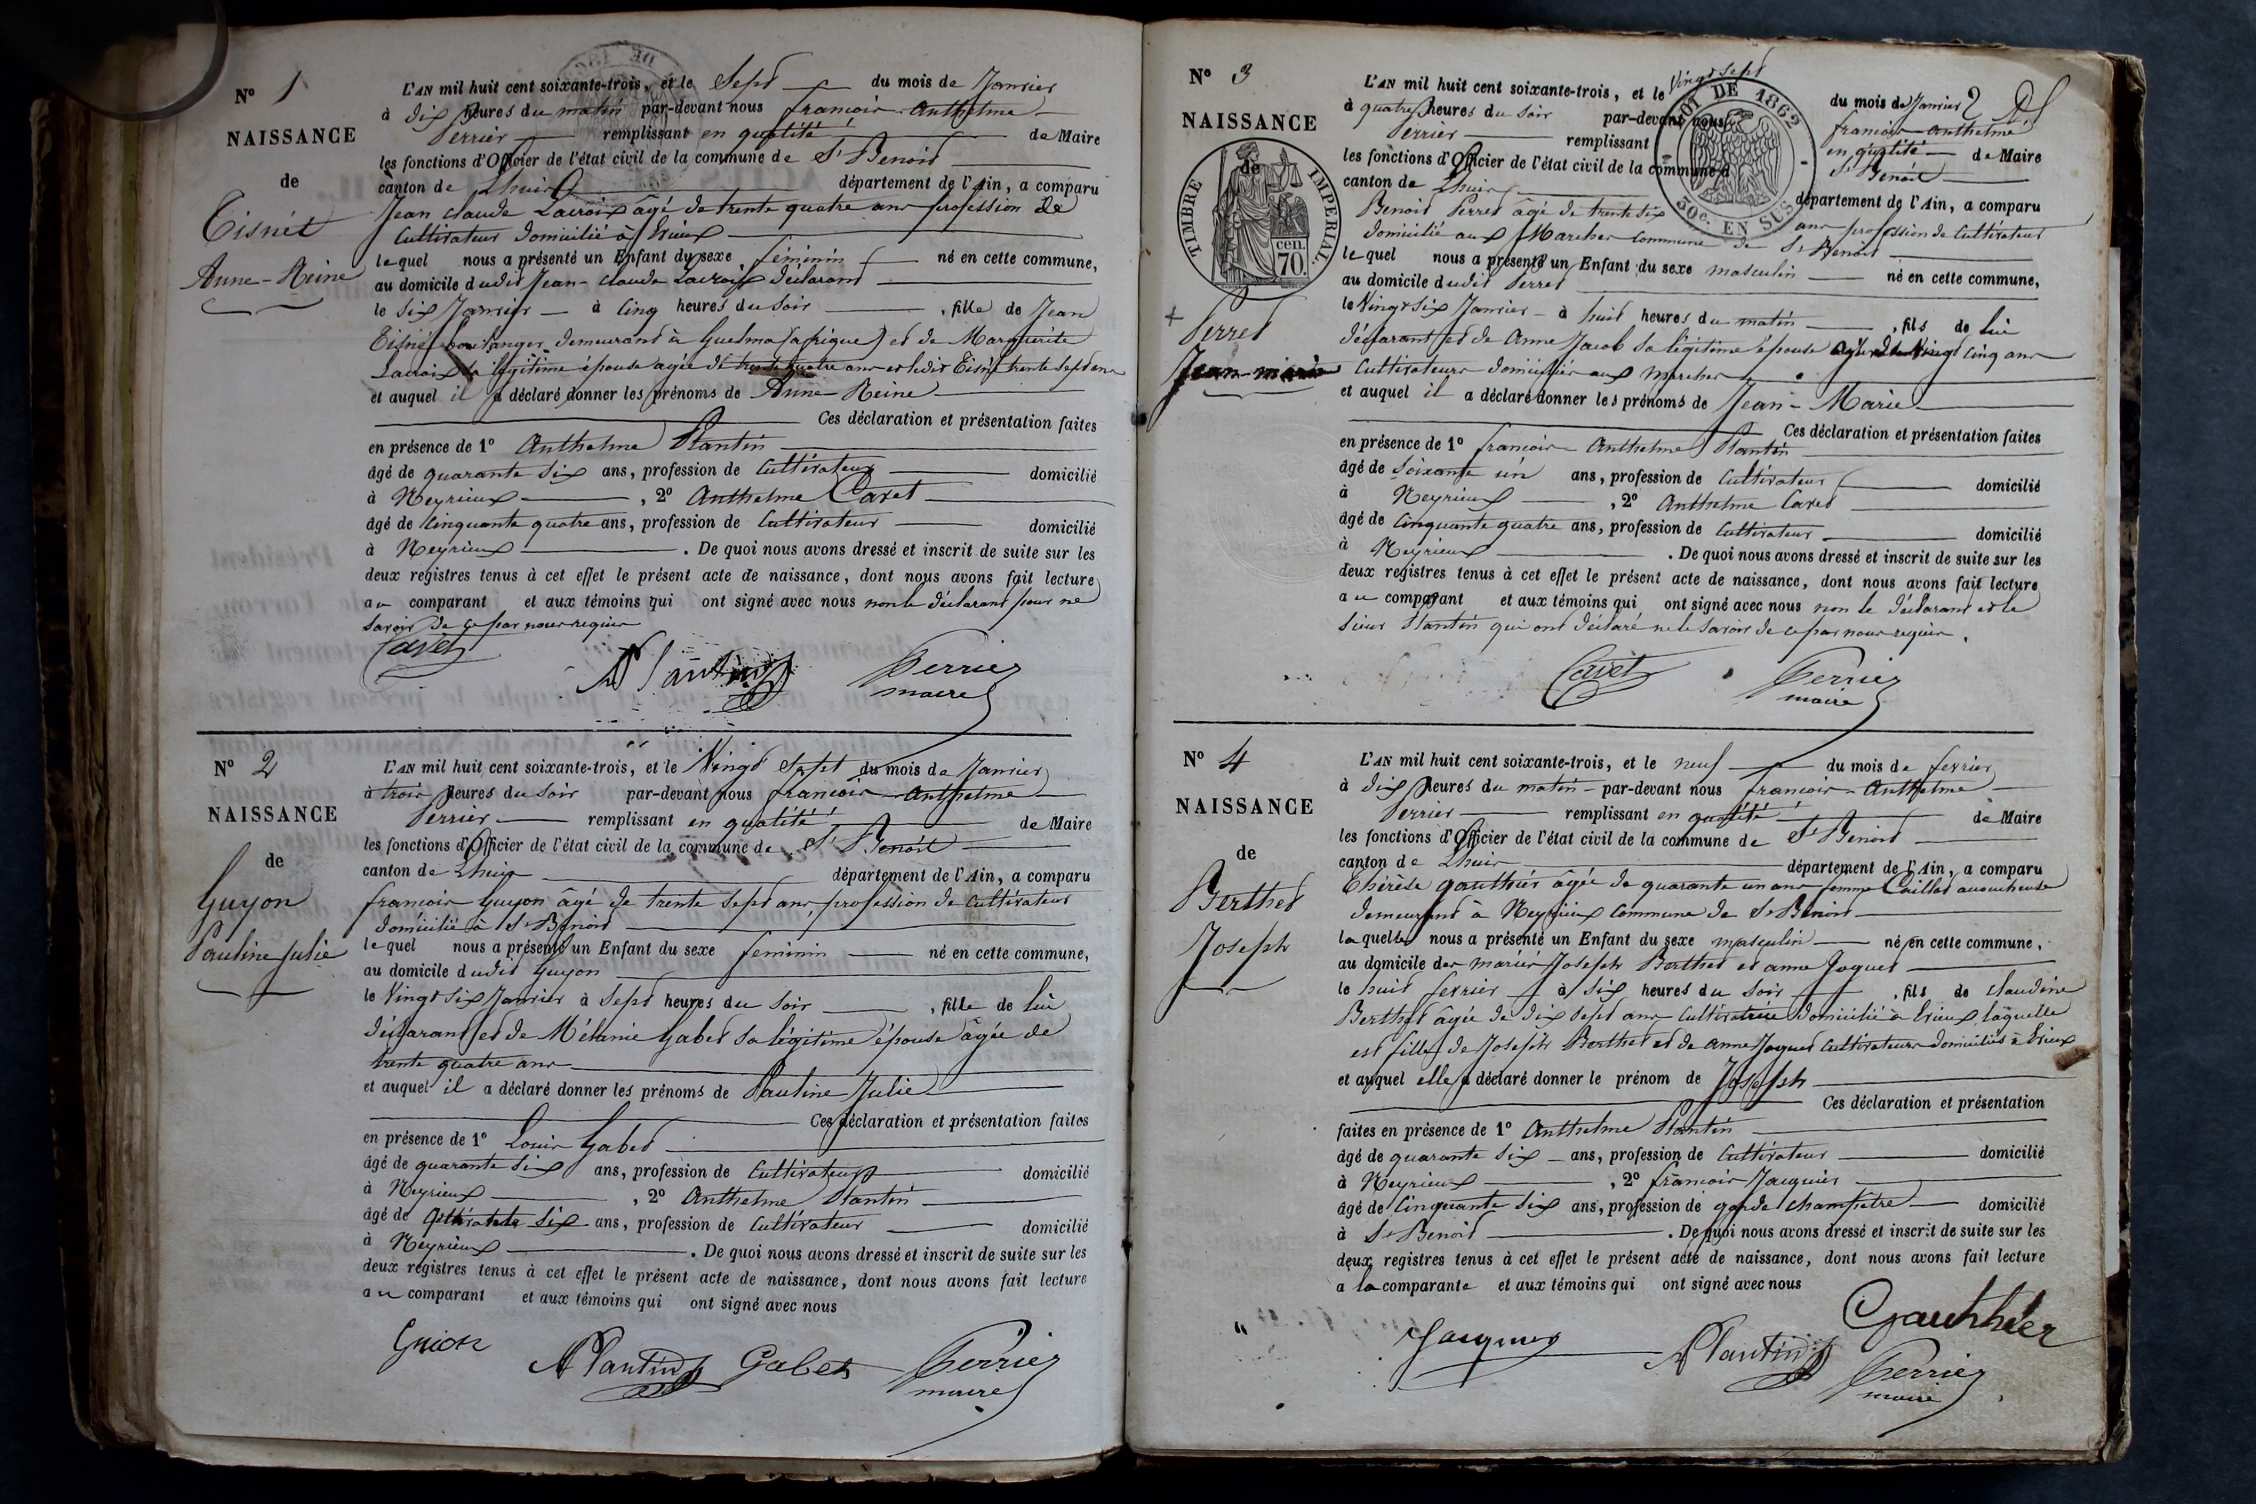 N° 1
NAISSANCE
de
Tisnét
Anne-Reine
L'AN mil huit cent soixante-trois, et le Sept du mois de Janvier
à dix heures du matin par-devant nous françois Anthelme
Perrier remplissant en qualité de Maire
les fonctions d'Officier de l'état civil de la commune de St Benoit
canton de Lhuis département de l'Ain, a comparu
Jean claude Lacroix âgé de trente quatre ans profession de
Cultivateur domicilié à Evieux
lequel nous a présenté un Enfant du sexe féminin né en cette commune,
au domicile dudit Jean-claude Lacroix déclarant
le six Janvier à cinq heures du soir , fille de Jean
Tisnét boulanger demeurant à Guelma (afrique) et de Marguerite
Lacroix sa légitime épouse agée de trente quatre ans et ledit Tisnét trente sept ans
et auquel il a déclaré donner les prénoms de Anne-Reine
Ces déclaration et présentation faites
en présence de 1° Anthelme Plantin
âgé de quarante six ans, profession de Cultivateur domicilié
à Neyrieux , 2° Anthelme Cavet
âgé de Cinquante quatre ans, profession de Cultivateur domicilié
à Neyrieux . De quoi nous avons dressé et inscrit de suite sur les
deux registres tenus à cet effet le présent acte de naissance, dont nous avons fait lecture
au comparant et aux témoins qui ont signé avec nous non le déclarant pour ne
savoir de ce par nous requis
Cavet
A Plantin
Perrier
maire
N° 2
NAISSANCE
de
Guyon
Pauline Julie
L'AN mil huit cent soixante-trois, et le Vingt Sept du mois de Janvier
à trois heures du soir par-devant nous françois Anthelme
Perrier remplissant en qualité de Maire
les fonctions d'Officier de l'état civil de la commune de St Benoit
canton de Lhuis département de l'Ain, a comparu
françois Guyon âgé de trente sept ans, profession de Cultivateur
domicilié à St Benoit
lequel nous a présenté un Enfant du sexe feminin né en cette commune,
au domicile dudit Guyon
le Vingt six Janvier à Sept heures du soir , fille de lui
déclarant et de Mélanie Gabet sa légitime épouse âgée de
trente quatre ans
et auquel il a déclaré donner les prénoms de Pauline Julie
Ces déclaration et présentation faites
en présence de 1° Louis Gabet
âgé de quarante six ans, profession de Cultivateur domicilié
à Neyrieux , 2° Anthelme Plantin
âgé de six ans, profession de Cultivateur domicilié
à Neyrieux . De quoi nous avons dressé et inscrit de suite sur les
deux registres tenus à cet effet le présent acte de naissance, dont nous avons fait lecture
au comparant et aux témoins qui ont signé avec nous
Guion
A Plantin
Gabet
Perrier
maire
N° 3
NAISSANCE
de
TIMBRE IMPERIAL
70 cen.
Perret
Jean-marie
LOI DE 1862
50c. EN SUS
L'AN mil huit cent soixante-trois, et le Vingt Sept du mois de Janvier 2
à quatre heures du soir par-devant nous françois Anthelme
Perrier remplissant en qualité de Maire
les fonctions d'Officier de l'état civil de la commune d St Benoit
canton de Lhuis département de l'Ain, a comparu
Benoit Perret âgé de trente six ans profession de Cultivateur
domicilié aux Marches commune de St Benoit
lequel nous a présenté un Enfant du sexe masculin né en cette commune,
au domicile dudit Perret
le Vingt six Janvier à huit heures du matin , fils de lui
déclarant et de Anne Jacob sa légitime épouse Vingt cinq ans
Cultivateurs domiciliés aux Marches
et auquel il a déclaré donner les prénoms de Jean-Marie
Ces déclaration et présentation faites
en présence de 1° françois Anthelme Plantin
âgé de soixante un ans, profession de Cultivateur domicilié
à Neyrieux , 2° Anthelme Cavet
âgé de Cinquante quatre ans, profession de Cultivateur domicilié
à Neyrieux . De quoi nous avons dressé et inscrit de suite sur les
deux registres tenus à cet effet le présent acte de naissance, dont nous avons fait lecture
au comparant et aux témoins qui ont signé avec nous non le déclarant et le
sieur Plantin qui ont déclaré ne le savoir de ce par nous requis.
Cavet
Perrier
maire
N° 4
NAISSANCE
de
Berthet
Joseph
L'AN mil huit cent soixante-trois, et le neuf du mois de fevrier
à dix heures du matin par-devant nous françois Anthelme
Perrier remplissant en qualité de Maire
les fonctions d'Officier de l'état civil de la commune de St Benoit
canton de Lhuis département de l'Ain, a comparu
Thérèse Gauthier âgée de quarante un ans femme Caillat accoucheuse
demeurant à Neyrieux commune de St Benoit
laquelle nous a présenté un Enfant du sexe masculin né en cette commune,
au domicile des mariés Joseph Berthet et anne Joguet
le huit fevrier à six heures du soir , fils de claudine
Berthet âgée de dix sept ans Cultivatrice domicilié à Evieux laquelle
est fille de Joseph Berthet et de anne Joguet Cultivateurs domiciliés à Evieux
et auquel elle a déclaré donner le prénom de Joseph
Ces déclaration et présentation
faites en présence de 1° Anthelme Plantin
âgé de quarante six ans, profession de Cultivateur domicilié
à Neyrieux , 2° françois Jacquier
âgé de Cinquante six ans, profession de garde champêtre domicilié
à St Benoit . De quoi nous avons dressé et inscrit de suite sur les
deux registres tenus à cet effet le présent acte de naissance, dont nous avons fait lecture
a la comparante et aux témoins qui ont signé avec nous
Gauthier
A Plantin
Perrier
maire